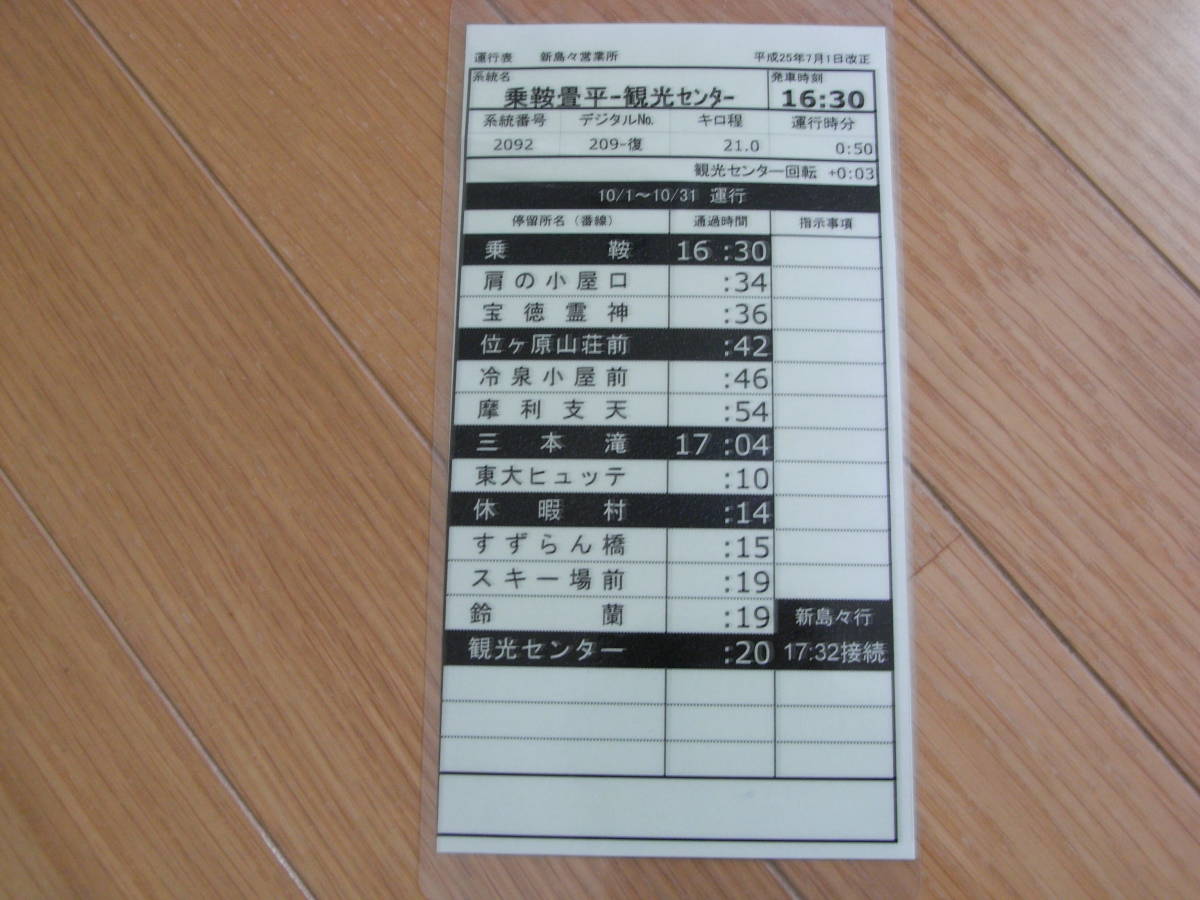 運行表 新島々営業所 平成25年7月1日改正
系統名 発車時刻
乗鞍畳平-観光センター 16:30
系統番号 デジタル№. キロ程 運行時分
2092 209-復 21.0 0:50
観光センター回転 +0:03
10/1～10/31 運行
停留所名（番線） 通過時間 指示事項
乗鞍 16:30
肩の小屋口 :34
宝徳霊神 :36
位ヶ原山荘前 :42
冷泉小屋前 :46
摩利支天 :54
三本滝 17:04
東大ヒュッテ :10
休暇村 :14
すずらん橋 :15
スキー場前 :19
鈴蘭 :19 新島々行
観光センター :20 17:32接続